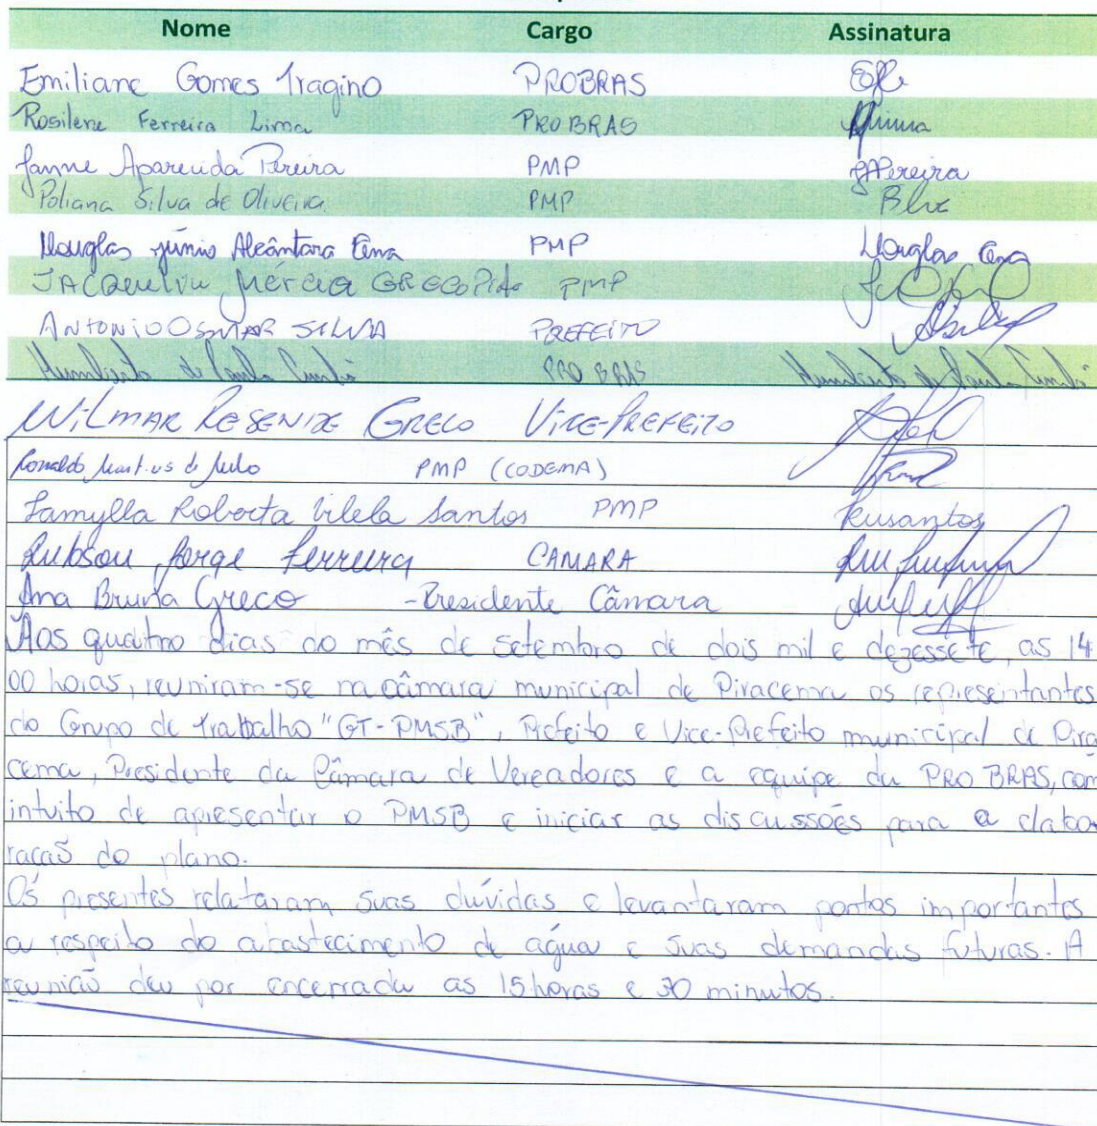 Nome Cargo Assinatura
Emiliane Gomes Tragino PROBRAS
Rosilene Ferreira Lima PROBRAS
Janne Aparecida Pereira PMP JAPereira
Poliana Silva de Oliveira PMP
Douglas júnio Alcântara Cena PMP Douglas Cena
JACQUELINE MÉRCIA GRECO PMP
ANTONIO OSMAR SILVA PREFEITO
Humberto de Paula PRO BRAS Humberto de Paula
WILMAR RESENDE GRECO VICE-PREFEITO
Ronaldo Martins de Melo PMP (CODEMA)
Jamylla Roberta Vilela Santos PMP
Rubson Jorge Ferreira CAMARA
Ana Bruna Greco - Presidente Câmara
Aos quatro dias do mês de setembro de dois mil e dezessete, as 14
00 horas, reuniram-se na câmara municipal de Piracema os representantes
do Grupo de Trabalho "GT-PMSB", Prefeito e Vice-Prefeito municipal de Pira
cema, Presidente da Câmara de Vereadores e a equipe da PRO BRAS, com
intuito de apresentar o PMSB e iniciar as discussões para a elabo
raçaõ do plano.
Os presentes relataram suas dúvidas e levantaram pontos importantes
a respeito do abastecimento de água e suas demandas futuras. A
reuniaõ deu por encerrada as 15 horas e 30 minutos.